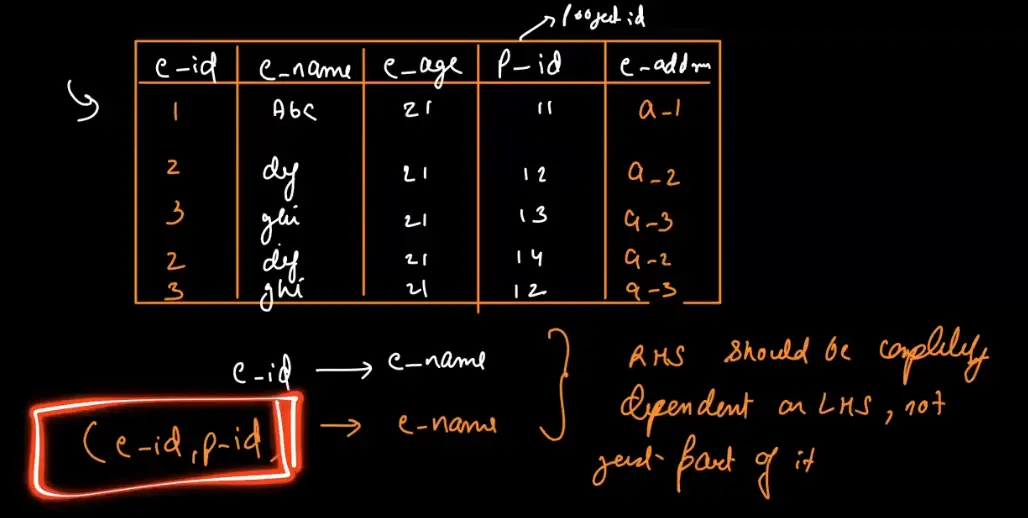 project id
e-id e-name e-age P-id e-addrn
1 Abc 21 11 a-1
2 dy 21 12 a-2
3 ghi 21 13 a-3
2 dy 21 14 a-2
3 ghi 21 12 a-3
e-id → e-name
(e-id, p-id) → e-name
RHS should be completely
dependent on LHS, not
just part of it